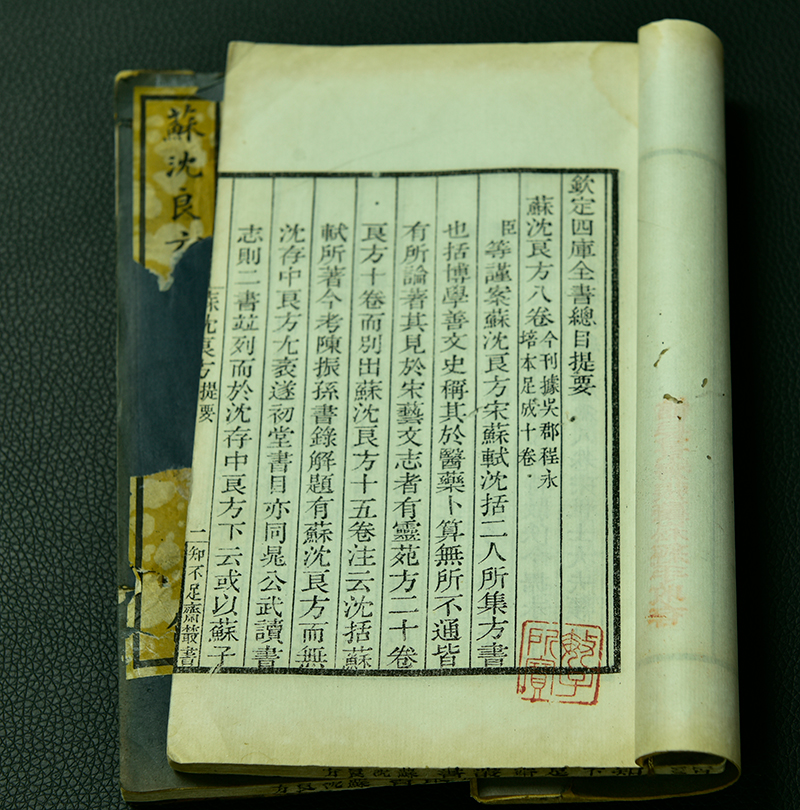 欽定四庫全書總目提要
蘇沈良方八卷
今刊據吳郡程永
培本足成十卷
臣等謹案蘇沈良方宋蘇軾沈括二人所集方書
也括博學善文史稱其於醫藥卜算無所不通皆
有所論著其見於宋藝文志者有靈苑方二十卷
良方十卷而別出蘇沈良方十五卷注云沈括蘇
軾所著今考陳振孫書錄解題有蘇沈良方而無
沈存中良方尤袤遂初堂書目亦同晁公武讀書
志則二書竝列而於沈存中良方下云或以蘇子
蘇沈良方提要
二
知不足齋叢書
蘇沈良方